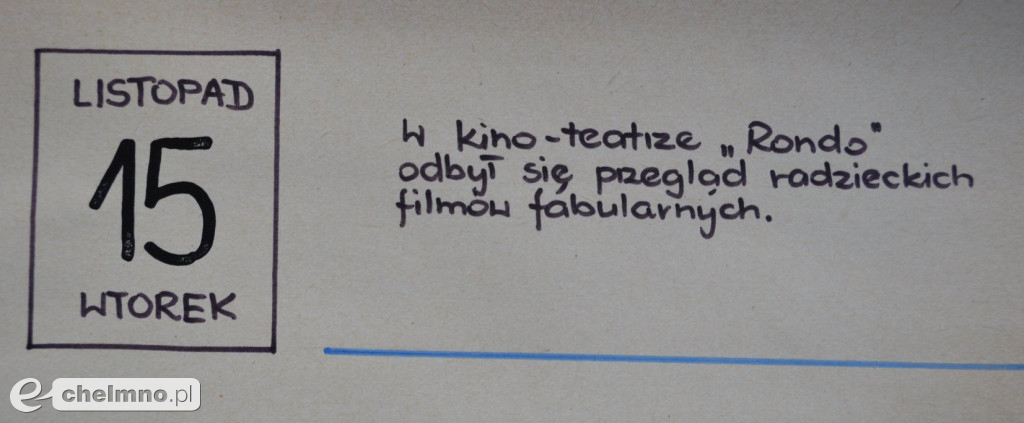 LISTOPAD
15
WTOREK
W kino-teatrze „Rondo"
odbył się przegląd radzieckich
filmów fabularnych.
e-chelmno.pl